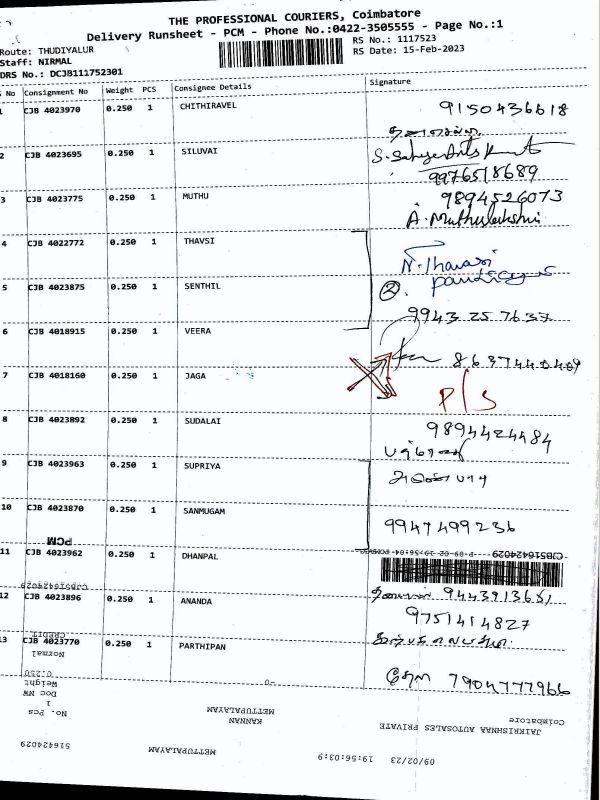 THE PROFESSIONAL COURIERS, Coimbatore
Delivery Runsheet - PCM - Phone No.:0422-3505555 - Page No.:1
Route: THUDIYALUR RS No.: 1117523
Staff: NIRMAL RS Date: 15-Feb-2023
DRS No.: DCJB111752301
S No Consignment No Weight PCS Consignee Details Signature
1 CJB 4023970 0.250 1 CHITHIRAVEL 9150436618
2 CJB 4023695 0.250 1 SILUVAI
9976518689
3 CJB 4023775 0.250 1 MUTHU 9894526073
A. Muthulakshmi
4 CJB 4022772 0.250 1 THAVSI
5 CJB 4023875 0.250 1 SENTHIL 2
9943 25 7637
6 CJB 4018915 0.250 1 VEERA
8637440409
7 CJB 4018160 0.250 1 JAGA P/S
8 CJB 4023892 0.250 1 SUDALAI 9894424484
9 CJB 4023963 0.250 1 SUPRIYA
10 CJB 4023870 0.250 1 SANMUGAM 9947499236
PCM
CJB516424029
11 CJB 4023962 0.250 1 DHANPAL
CJB516424029
12 CJB 4023896 0.250 1 ANANDA
9751414827
CREDIT
13 CJB 4023770 0.250 1 PARTHIPAN
Normal
7904777966
0.250
Weight
Doc NW
1
No. Pcs
METTUPALAYAM
KANNAN
Coimbatore
JAIKRISHNAA AUTOSALES PRIVATE
516424029
METTUPALAYAM
09/02/23 19:56:03:9